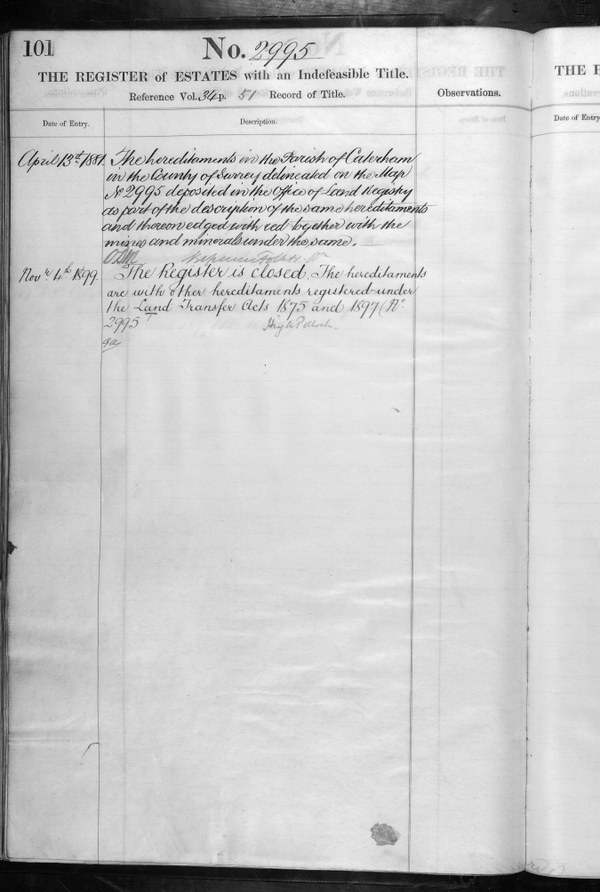 101
No. 2995
THE REGISTER of ESTATES with an Indefeasible Title.
Reference Vol. 34 p. 51 Record of Title.
Observations.
Date of Entry.
Description.
April 13th 1881.
The hereditaments in the Parish of Caterham
in the County of Surrey delineated on the Map
No 2995 deposited in the Office of Land Registry
as part of the description of the same hereditaments
and thereon edged with red together with the
mines and minerals under the same.
Novr 4th 1899
The Register is closed. The hereditaments
are with other hereditaments registered under
the Land Transfer Acts 1875 and 1897 (No
2995
THE R
Date of Entry